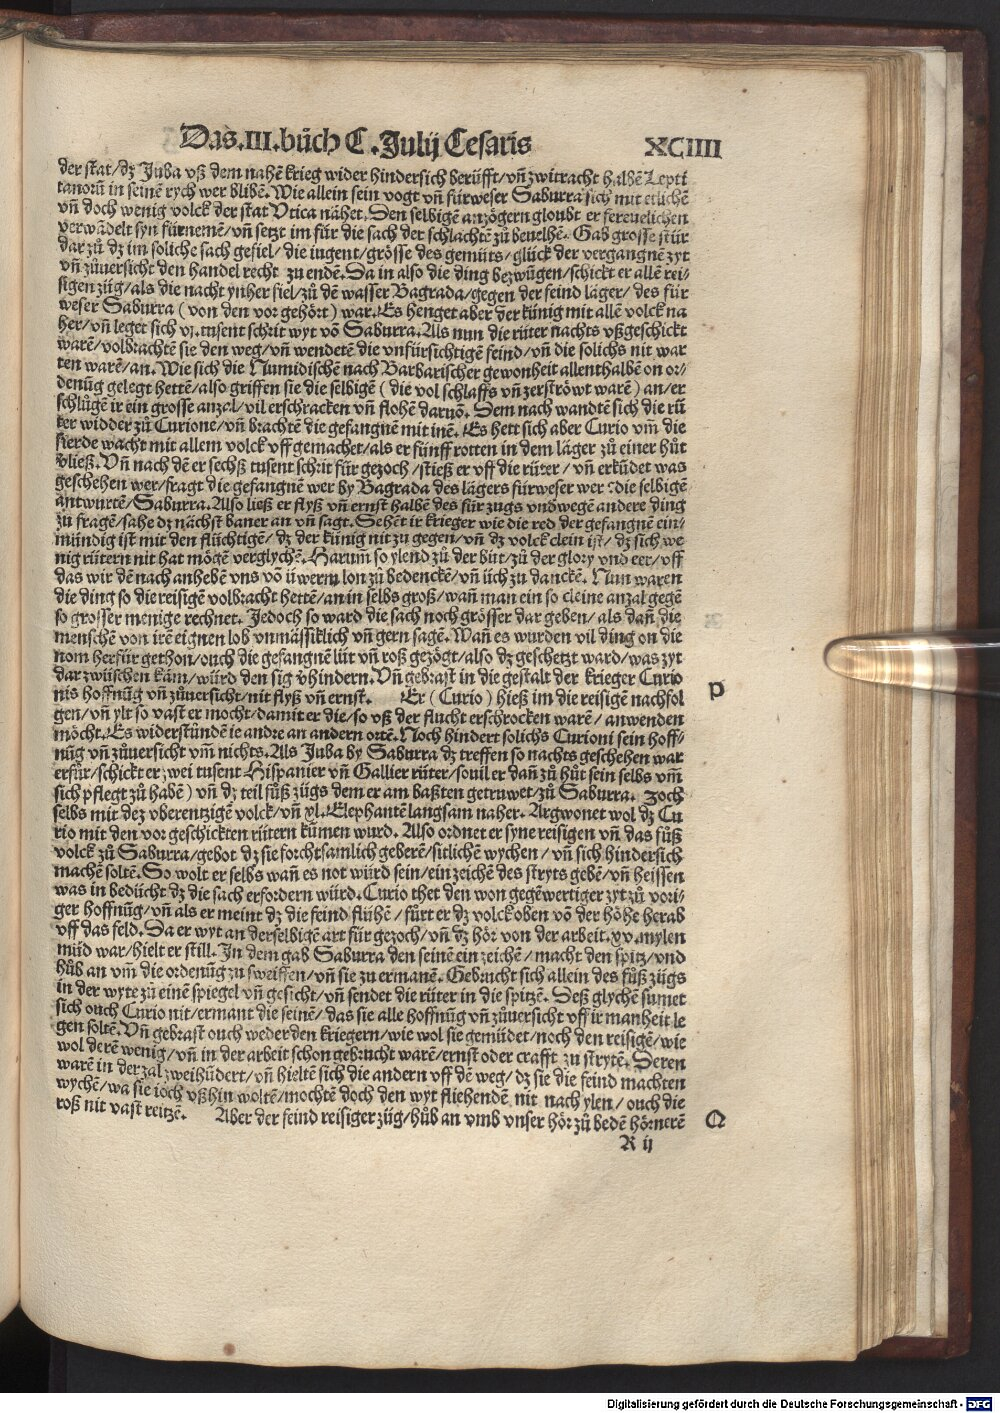 Das.III.bůch C.Julij Cesaris XCIIII
der stat/dz Juba vß dem nahē krieg wider hindersich berüfft/vñ zwitracht halbē Lepti
tanorū in seinē rych wer blibē.Wie allein sein vogt vñ fürweser Saburra sich mit etlichē
vñ doch wenig volck der stat Vtica nähet.Den selbigē anzögern gloubt er fereuelichen
verwādelt syn fürnemē/vñ setzt im für die sach der schlachtē zů beuelhē. Gab grosse stür
dar zů dz im soliche sach gefiel/die iugent/grösse des gemüts/glück der vergangnē zyt
vñ zůuersicht den handel recht zu endē.Da in also die ding bezwůgen/schickt er allē rei-
sigen züg/als die nacht ynher fiel/zů dē wasser Bagrada/gegen der feind läger/des für
weser Saburra (von den vor gehört) war.Es henget aber der künig mit allē volck na
her/vñ leget sich vj.tusent schrit wyt vō Saburra.Als nun die rüter nachts vßgeschickt
warē/volbrachtē sie den weg/vñ wendetē die vnfürsichtigē feind/vñ die solichs nit war
ten warē/an.Wie sich die Numidischē nach Barbarischer gewonheit allenthalbē on or/
denūg gelegt hettē/also griffen sie die selbigē (die vol schlaffs vñ zerströwt warē) an/er
schlůgē ir ein grosse anzal/vil erschracken vñ flohē daruō. Dem nach wandtē sich die rü
ter widder zů Curione/vñ brachtē die gefangnē mit inē. Es hett sich aber Curio vm̄ die
fierde wacht mit allem volck vff gemachet/als er fünff rotten in dem läger zů einer hůt
bließ.Vñ nach dē er sechß tusent schrit für gezoch/stieß er vff die rüter/vñ erkūdet was
geschehen wer/fragt die gefangnē wer by Bagrada des lägers fürweser wer:die selbigē
antwurtē/Saburra.Also ließ er flyß vñ ernst halbē des für zugs vnd wegē andere ding
zů fragē/sahe dz nächst baner an vñ sagt.Sehēt ir krieger wie die red der gefangnē ein/
mündig ist mit den flüchtigē/dz der künig nit zu gegen/vñ dz volck clein ist/dz sich we
nig rütern nit hat mögē verglychē.Harum̄ so ylend zů der büt/zů der glory vnd eer/vff
das wir dē nach anhebē vns vō üwerm lon zů bedenckē/vñ üch zu danckē. Nun waren
die ding so die reisigē volbracht hettē/an in selbs groß/wañ man ein so cleine anzal gegē
so grosser menige rechnet. Jedoch so ward die sach noch grösser dar geben/als dañ die
menschē von irē eignen lob vnmässiklich vñ gern sagē.Wañ es wurden vil ding on die
nom herfür gethon/ouch die gefangnē lüt vñ roß gezögt/also dz geschetzt ward/was zyt
dar zwüschen kām/würd den sig v̄hindern.Vñ gebrast in die gestalt der krieger Curio
nis hoffnūg vñ zůuersicht/nit flyß vñ ernst. Er (Curio) hieß im die reisigē nachfol P
gen/vñ ylt so vast er mocht/damit er die/so vß der flucht erschrocken warē/anwenden
möcht.Es widerstůndē ie andre an andern ortē.Noch hindert solichs Curioni sein hoff/
nūg vñ zůuersicht vm̄ nichts.Als Juba by Saburra dz treffen so nachts geschehen war
erfůr/schickt er zwei tusent Hispanier vñ Gallier rüter/souil er dañ zů hůt sein selbs vm̄
sich pflegt zů habē) vñ dz teil fůß zügs dem er am baßten getruwet/zů Saburra. Zoch
selbs mit dez vberentzigē volck/vñ xl.Elephantē langsam naher. Argwonet wol dz Cu
rio mit den vor geschickten rütern kūmen wurd. Also ordnet er syne reisigen vñ das fůß
volck zů Saburra/gebot dz sie forchtsamlich geberē/sitlichē wychen/vñ sich hindersich
machē soltē.So wolt er selbs wañ es not würd sein/ein zeichē des stryts gebē/vñ heissen
was in bedücht dz die sach erfordern würd.Curio thet den won gegēwertiger zyt zů vori/
ger hoffnūg/vñ als er meint dz die feind flühē/fůrt er dz volck oben vō der höhe herab
vff das feld. Da er wyt an derselbigē art für gezoch/vñ dz hör von der arbeit.xv.mylen
müd war/hielt er still.In dem gab Saburra den seinē ein zeichē/macht den spitz/vnd
hůb an vm̄ die ordenūg zu sweiffen/vñ sie zu ermanē.Gebrucht sich allein des fůß zügs
in der wyte zů einē spiegel vñ gesicht/vñ sendet die rüter in die spitzē.Deß glychē sumet
sich ouch Curio nit/ermant die seinē/das sie alle hoffnūg vñ zůuersicht vff ir manheit le
gen soltē.Vñ gebrast ouch weder den kriegern/wie wol sie gemüdet/noch den reisigē/wie
wol derē wenig/vñ in der arbeit schon gebrucht warē/ernst oder crafft zu strytē.Deren
warē in der zal zweihūdert/vñ hieltē sich die andern vff dē weg/dz sie die feind machten
wychē/wa sie ioch vßhin woltē/mochtē doch den wyt fliehendē nit nach ylen/ouch die
roß nit vast reitzē. Aber der feind reisiger züg/hůb an vmb vnser hör zů bedē hörnerē Q
R ij
Digitalisierung gefördert durch die Deutsche Forschungsgemeinschaft - DFG